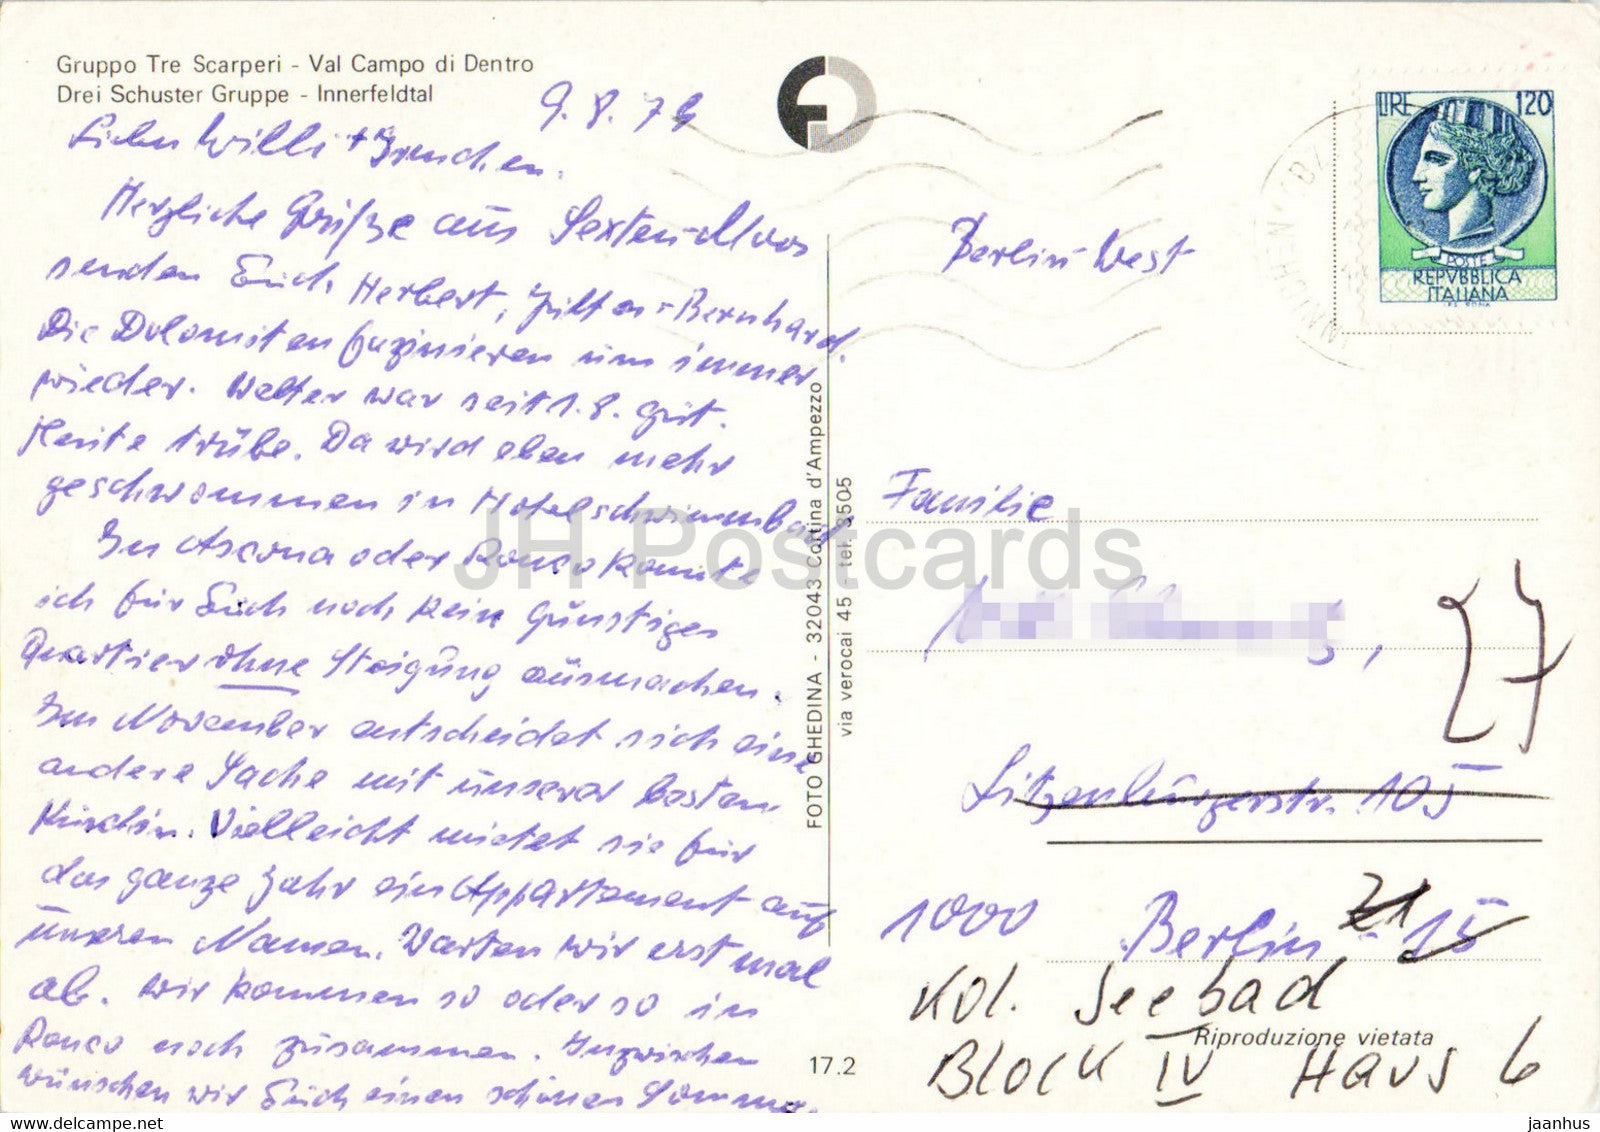 Gruppo Tre Scarperi - Val Campo di Dentro
Drei Schuster Gruppe - Innerfeldtal
9.8.79
Lieber Willi +
Herzliche Grüße aus Sexten-Moos
senden Euch Herbert, Bernhard.
Die Dolomiten faszinieren uns immer
wieder. Wetter war seit 1.8. gut.
Heute trübe. Da wird eben mehr
geschwommen in Hotelschwimmbad
In Ascona oder Ronco konnte
ich für Euch noch kein günstiges
Quartier ohne Steigung ausmachen.
Im November entscheidet sich eine
andere Sache mit unserer besten
Vielleicht mietet sie für
das ganze Jahr ein Appartement auf
unseren Namen. Warten wir erst mal
ab. Wir kommen so oder so in
Ronco noch zusammen. Inzwischen
wünschen wir Euch einen schönen Sommer
FOTO GHEDINA - 32043 Cortina d'Ampezzo
via verocai 45 - tel. 3505
17.2
LIRE 120
POSTE
REPVBBLICA
ITALIANA
MÜNCHEN
Berlin-West
Familie
Lietzenburgerstr. 105
1000 Berlin - 15
21
Kol. Seebad
Riproduzione vietata
Block IV Haus 6
27
JH Postcards
www.delcampe.net
jaanhus